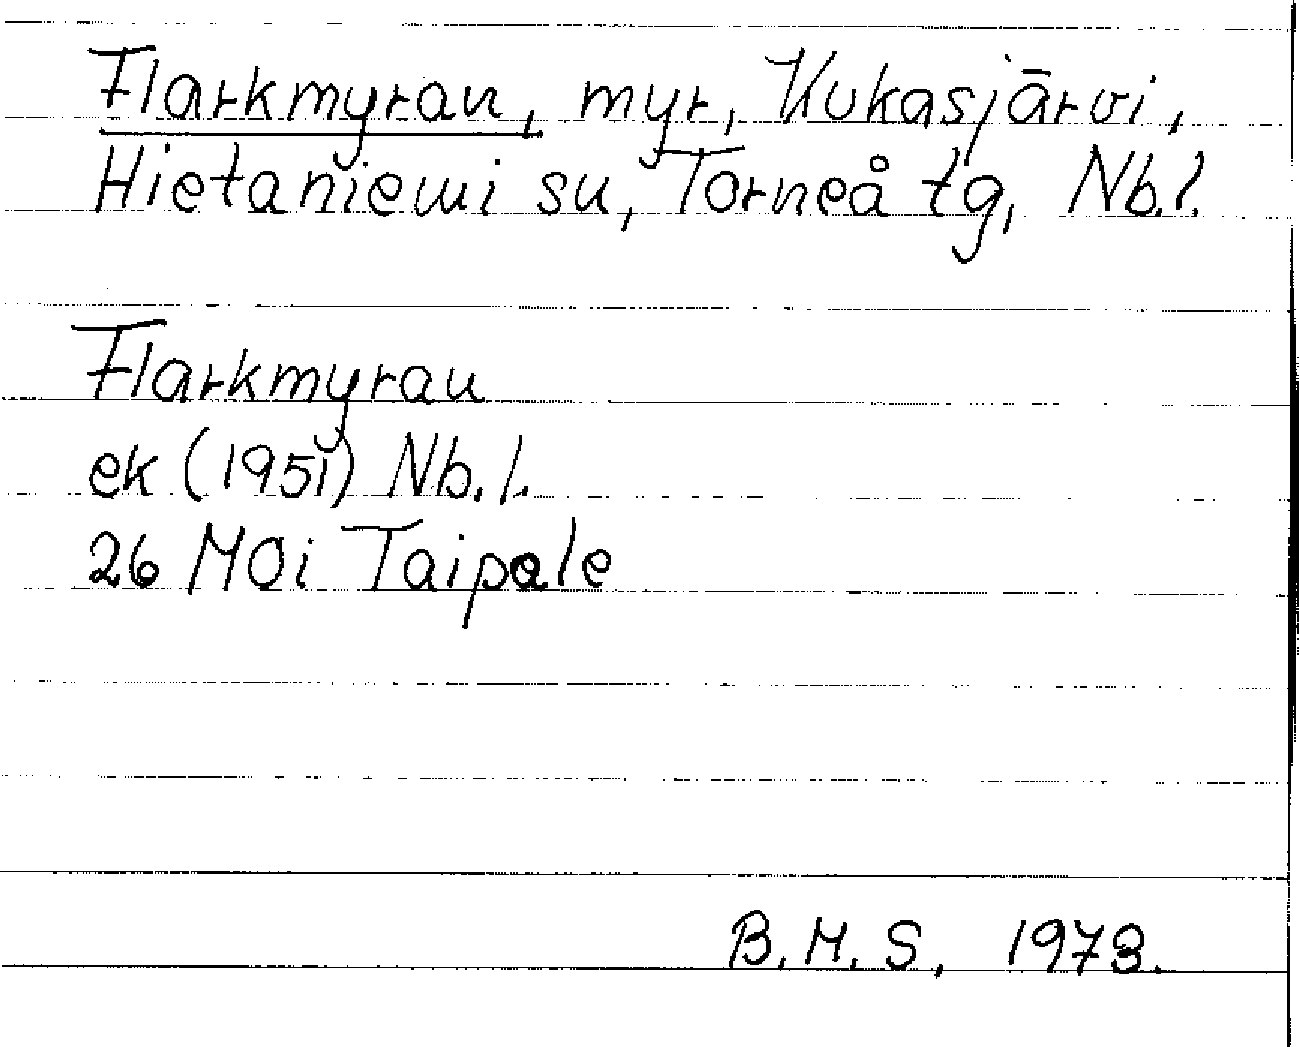 Flarkmyran, myr, Kukasjärvi,
Hietaniemi su, Torneå tg, Nb.l.
Flarkmyran
ek (1951) Nb.l.
26 MOi Taipale
B.M.S, 1973.